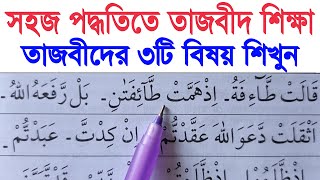 সহজ পদ্ধতিতে তাজবীদ শিক্ষা
তাজবীদের ৩টি বিষয় শিখুন
قَالَتْ طَّآءِفَةٌ۔ اِذْهَمَّتْ طَّآئِفَتٰنِ۔ بَلْ رَّفَعَهُ اللهُ۔
اَثْقَلَتْ دَّعَوَا اللهَ عَقَدْتُّمْ۔ اِنْ كِدْتَّ۔ عَبَدْتُّمْ۔